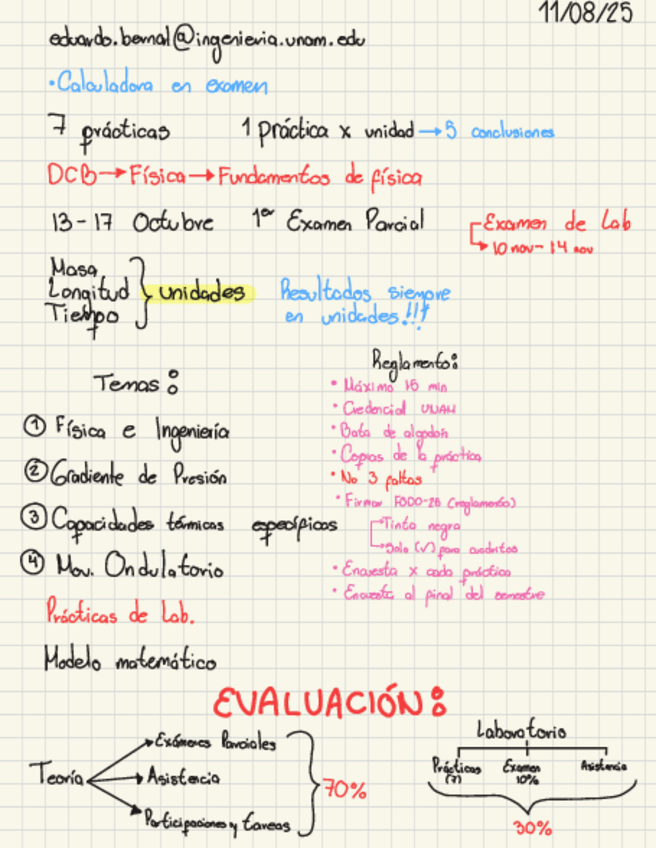 11/08/25
eduardo.bernal@ingenieria.unam.edu
•Calculadora en examen
7 prácticas 1 práctica x unidad → 5 conclusiones
DCB → Física → Fundamentos de física
13-17 Octubre 1er Examen Parcial
Examen de Lab
10 nov - 14 nov
Masa
Longitud
Tiempo
unidades
Resultados siempre
en unidades!!!
Temas:
① Física e Ingeniería
② Gradiente de Presión
③ Capacidades térmicas específicas
④ Mov. Ondulatorio
Prácticas de Lab.
Modelo matemático
Reglamento:
• Máximo 15 min
• Credencial UNAM
• Bata de algodón
• Copias de la práctica
• No 3 faltas
• Firmar FODO-26 (reglamento)
Tinta negra
Solo (✓) para
• Encuesta x cada práctica
• Encuesta al final del semestre
EVALUACIÓN:
Teoría
Exámenes Parciales
Asistencia
Participaciones y tareas
70%
Laboratorio
Prácticas (7)
Examen 10%
Asistencia
30%